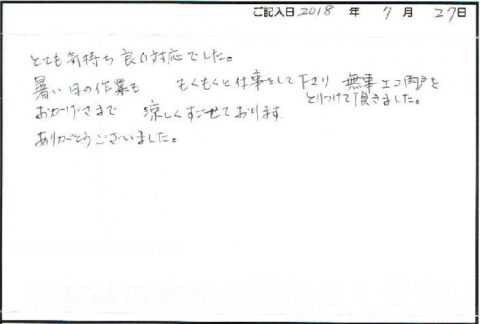 ご記入日 2018 年 7 月 27日
とても気持ち良い対応でした。
暑い日の作業も もくもくと仕事をして下さり 無事エコ雨戸を
とりつけて頂きました。
おかげさまで 涼しくすごせております
ありがとうございました。